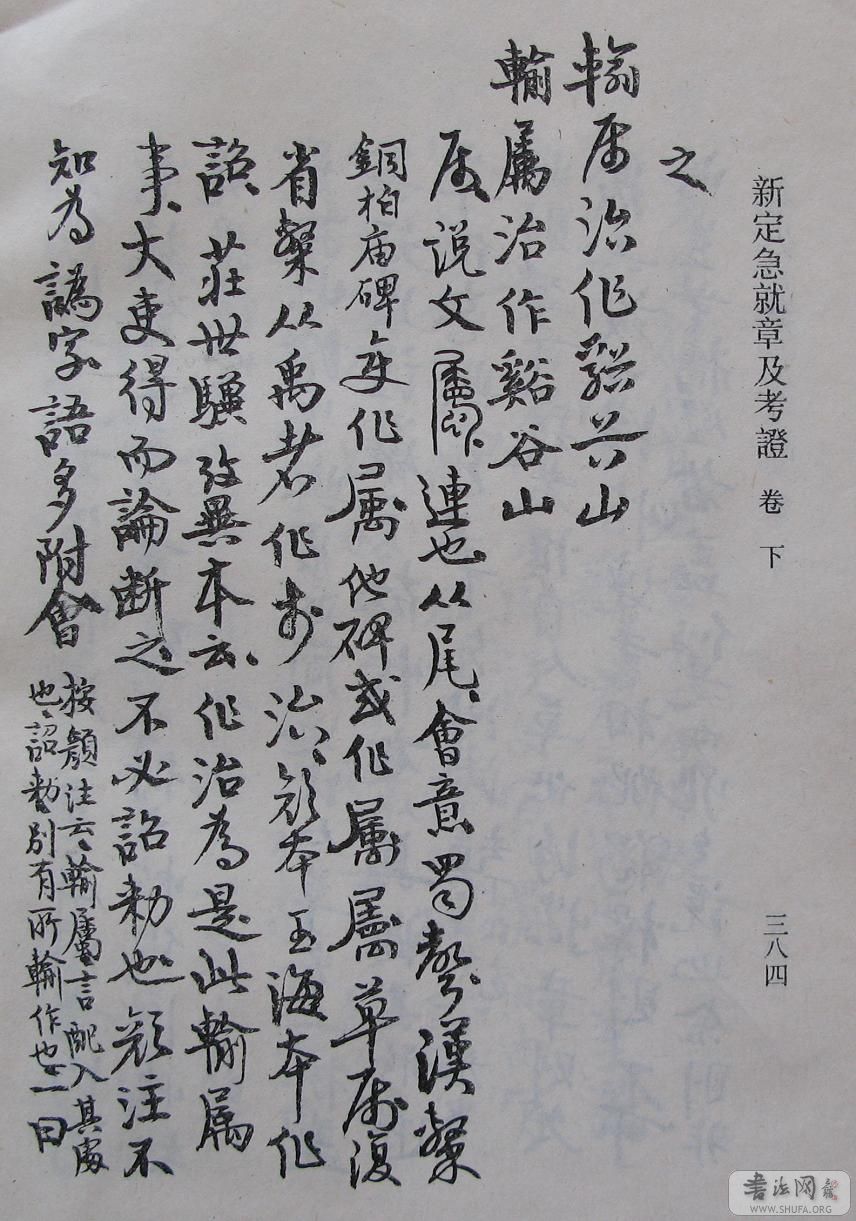 新定急就章及考證 卷下
三八四
之
輸屬治作谿谷山
輸屬治作谿谷山
属说文屬連也从尾會意蜀聲漢隸
銅柏庙碑变作属他碑或作属屬草属復
省隸从禹者作 治顔本玉海本作
詔莊世驥攷異本云作治為是此輸属
事大吏得而論断之不必詔勑也顔注不
知為譌字語多附會
按顔注云輸屬言配入其處
也詔勑別有所輸作也一曰
書法网
WWW.SHUFA.ORG